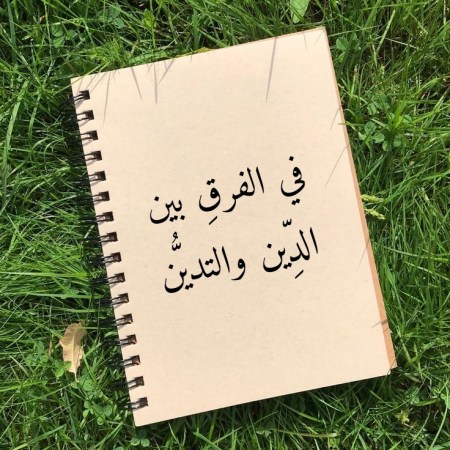 في الفرقِ بين
الدِّين والتدينُّ